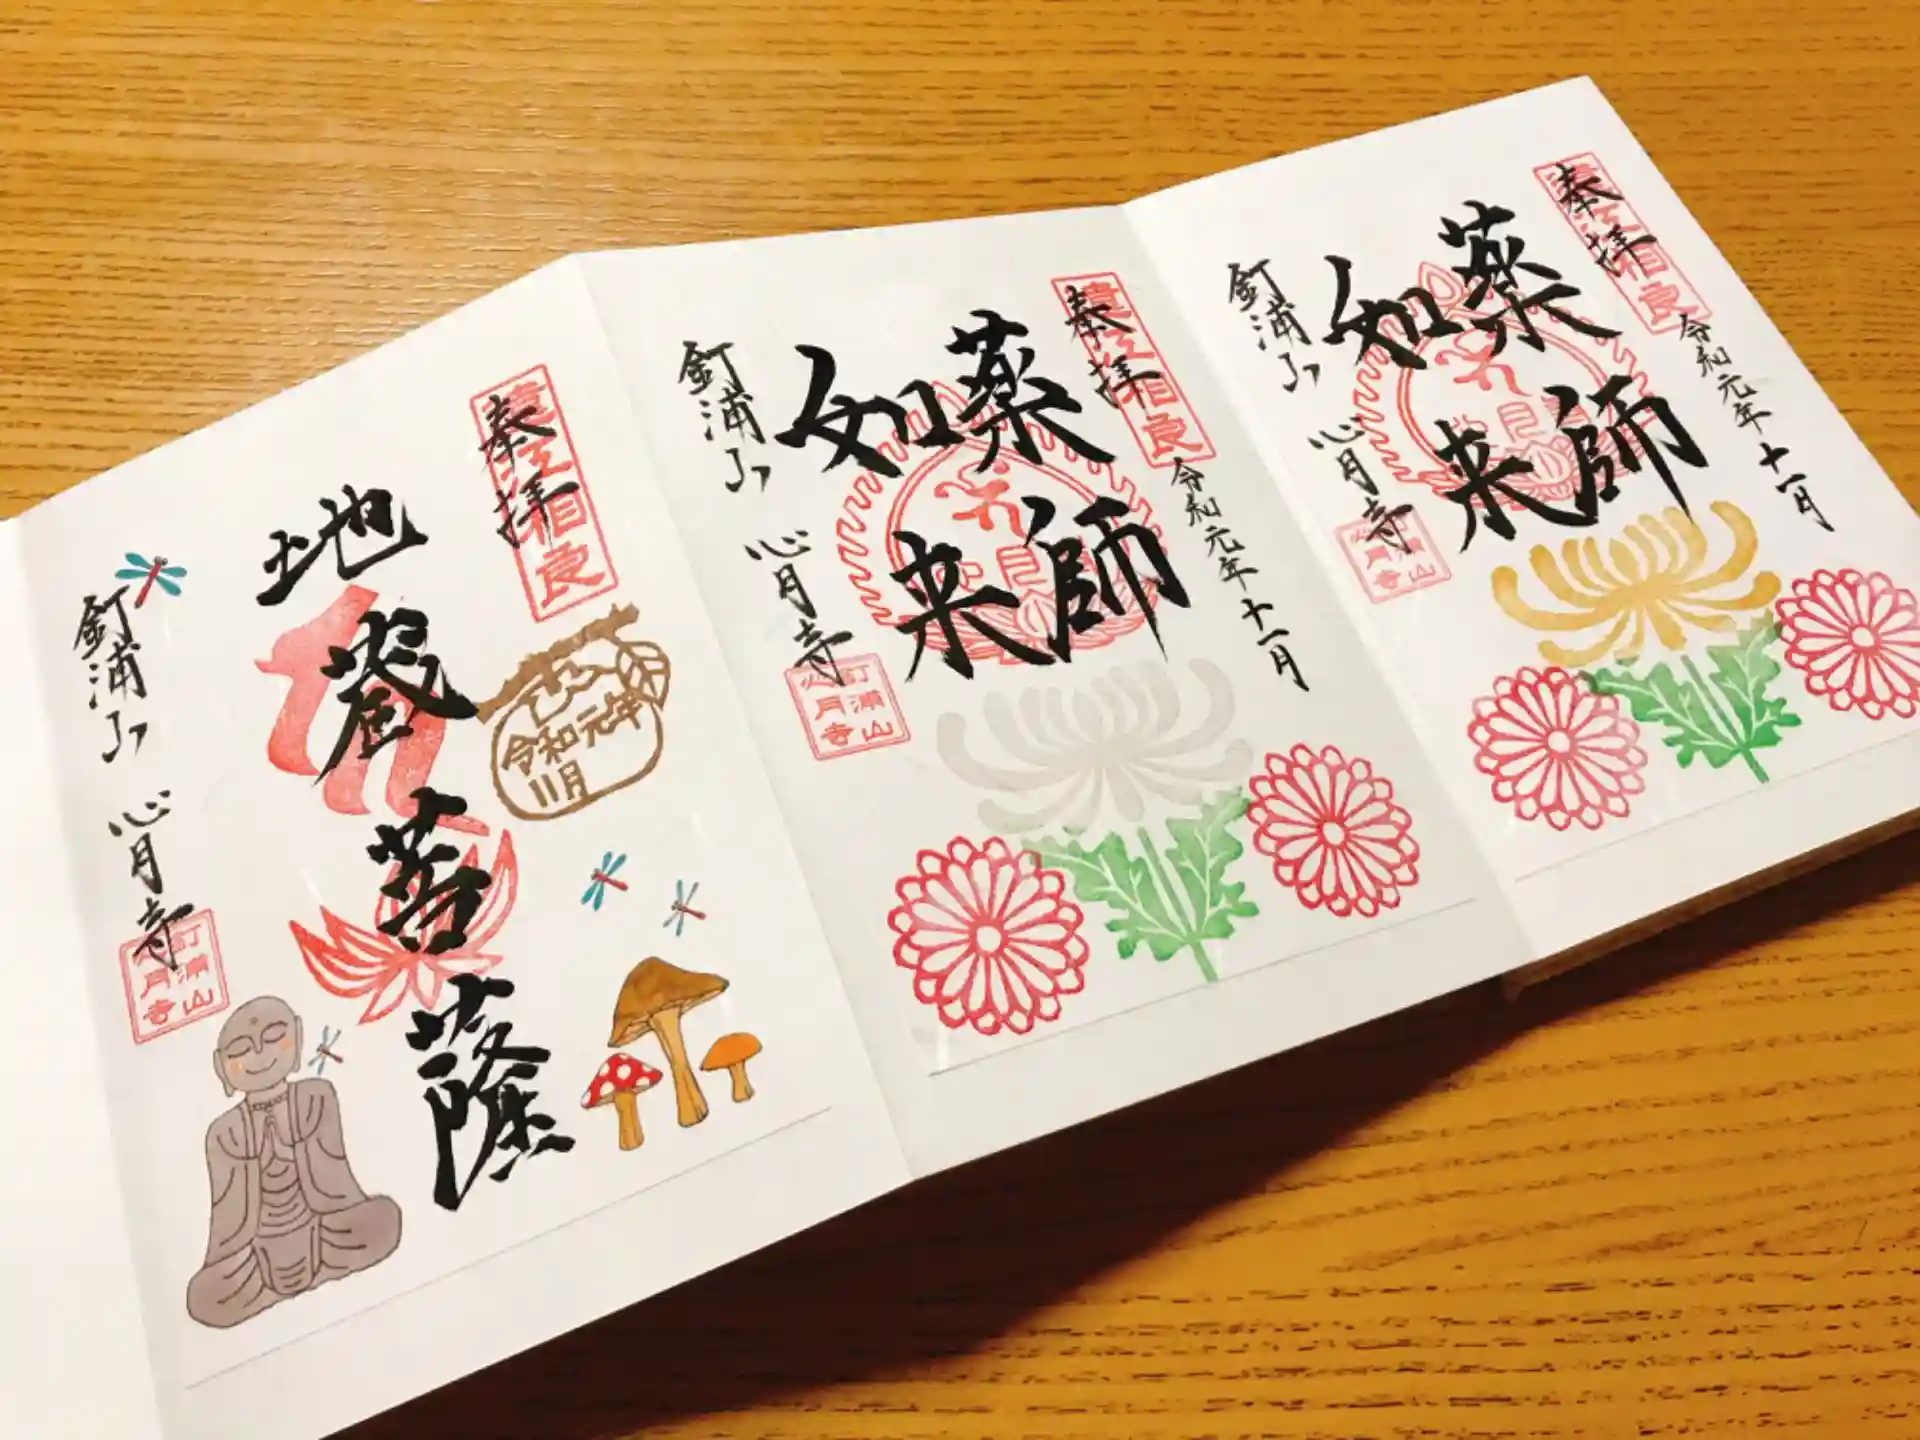 奉拝
遠江相良
令和元年十一月
薬師
如来
釘浦山 心月寺
釘浦山
心月寺
奉拝
遠江相良
令和元年十一月
薬師
如来
釘浦山 心月寺
釘浦山
心月寺
奉拝
遠江相良
令和元年
11月
地蔵菩薩
釘浦山 心月寺
釘浦山
心月寺